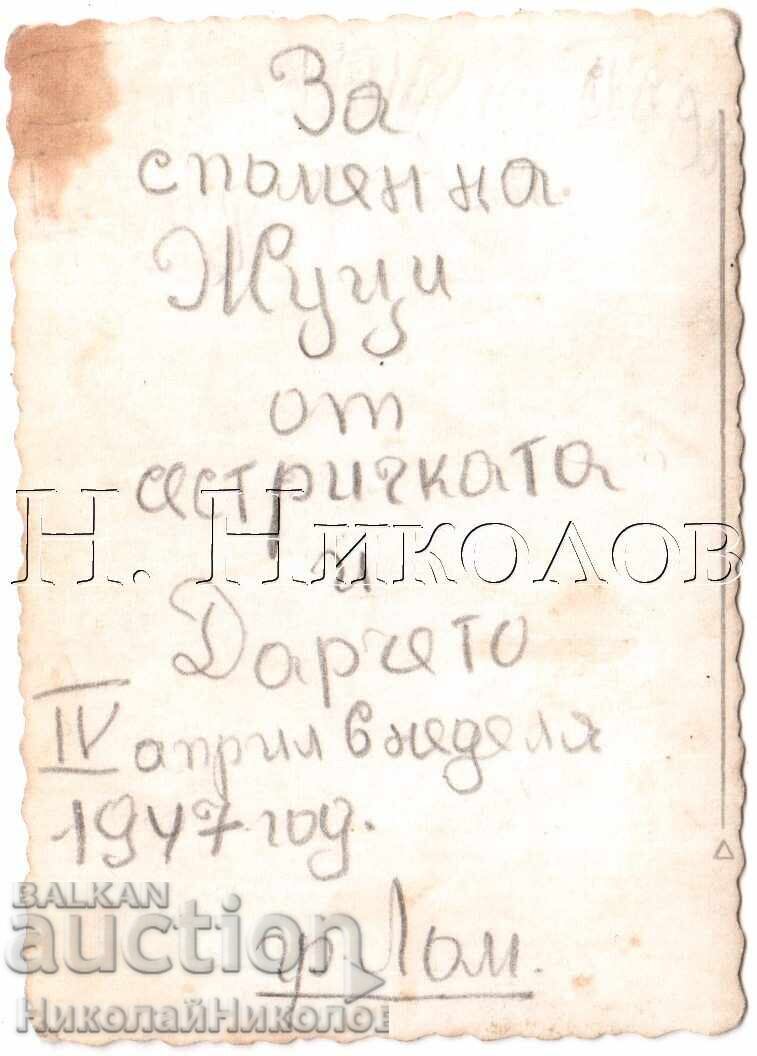 За
спомен на
Жуци
от
сестричката
и
Н. Николов
Дарчето
IV април в неделя
1947 год.
гр. Лом.
BALKAN
auction
НиколайНиколов